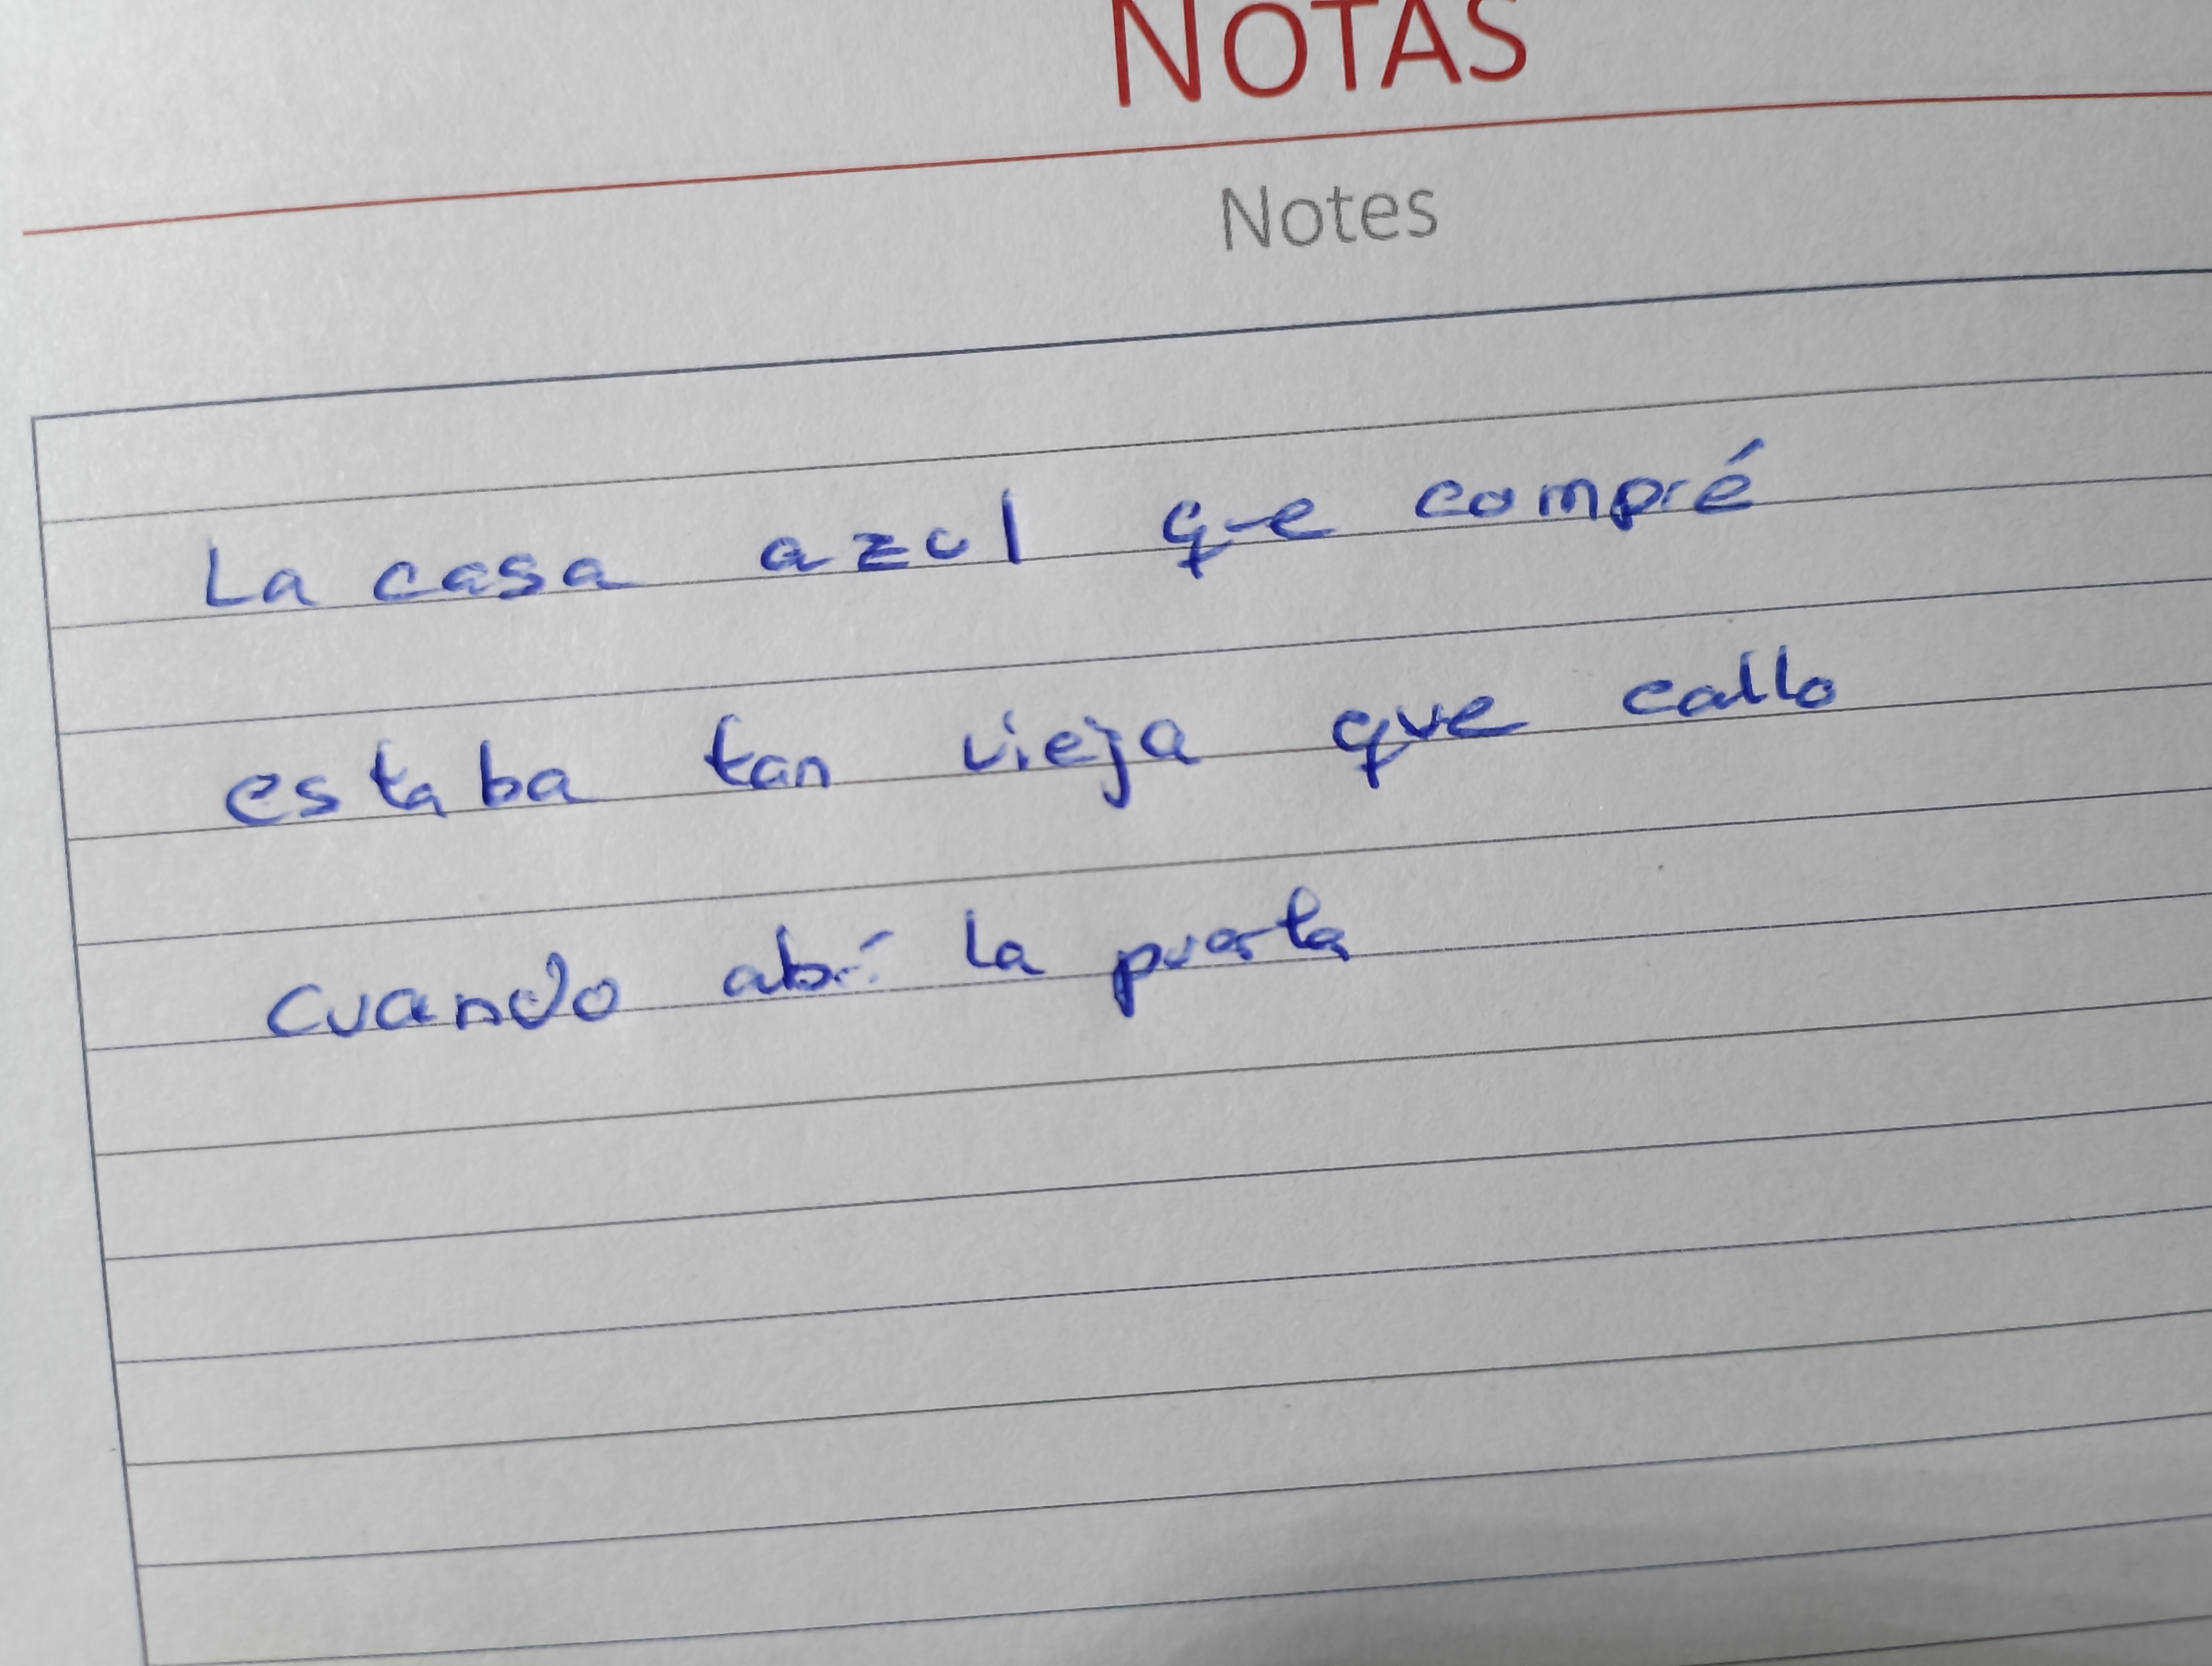 NOTAS
Notes
La casa azul que compré
estaba tan vieja que callo
cuando abrí la puerta